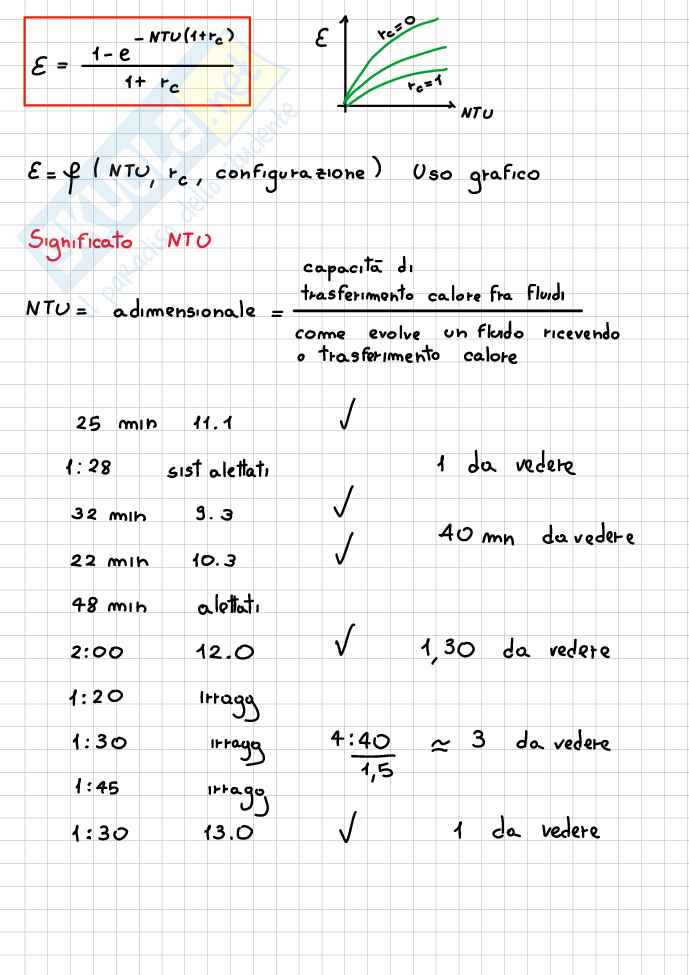 ε = (1-e^(-NTU(1+rc)))/(1+ rc)
ε
rc=0
rc=1
NTU
ε = φ ( NTU, rc, configurazione ) Uso grafico
Significato NTU
capacità di
trasferimento calore fra fluidi
NTU = adimensionale =
come evolve un fluido ricevendo
o trasferimento calore
25 min 11.1 ✓
1:28 sist alettati 1 da vedere
32 min 9.3 ✓
40 mn da vedere
22 min 10.3 ✓
48 min alettati
2:00 12.0 ✓ 1,30 da vedere
1:20 Irragg
1:30 Irragg 4:40/1,5 ≈ 3 da vedere
1:45 Irragg
1:30 13.0 ✓ 1 da vedere
SKUOLA.net
il paradiso dello studente